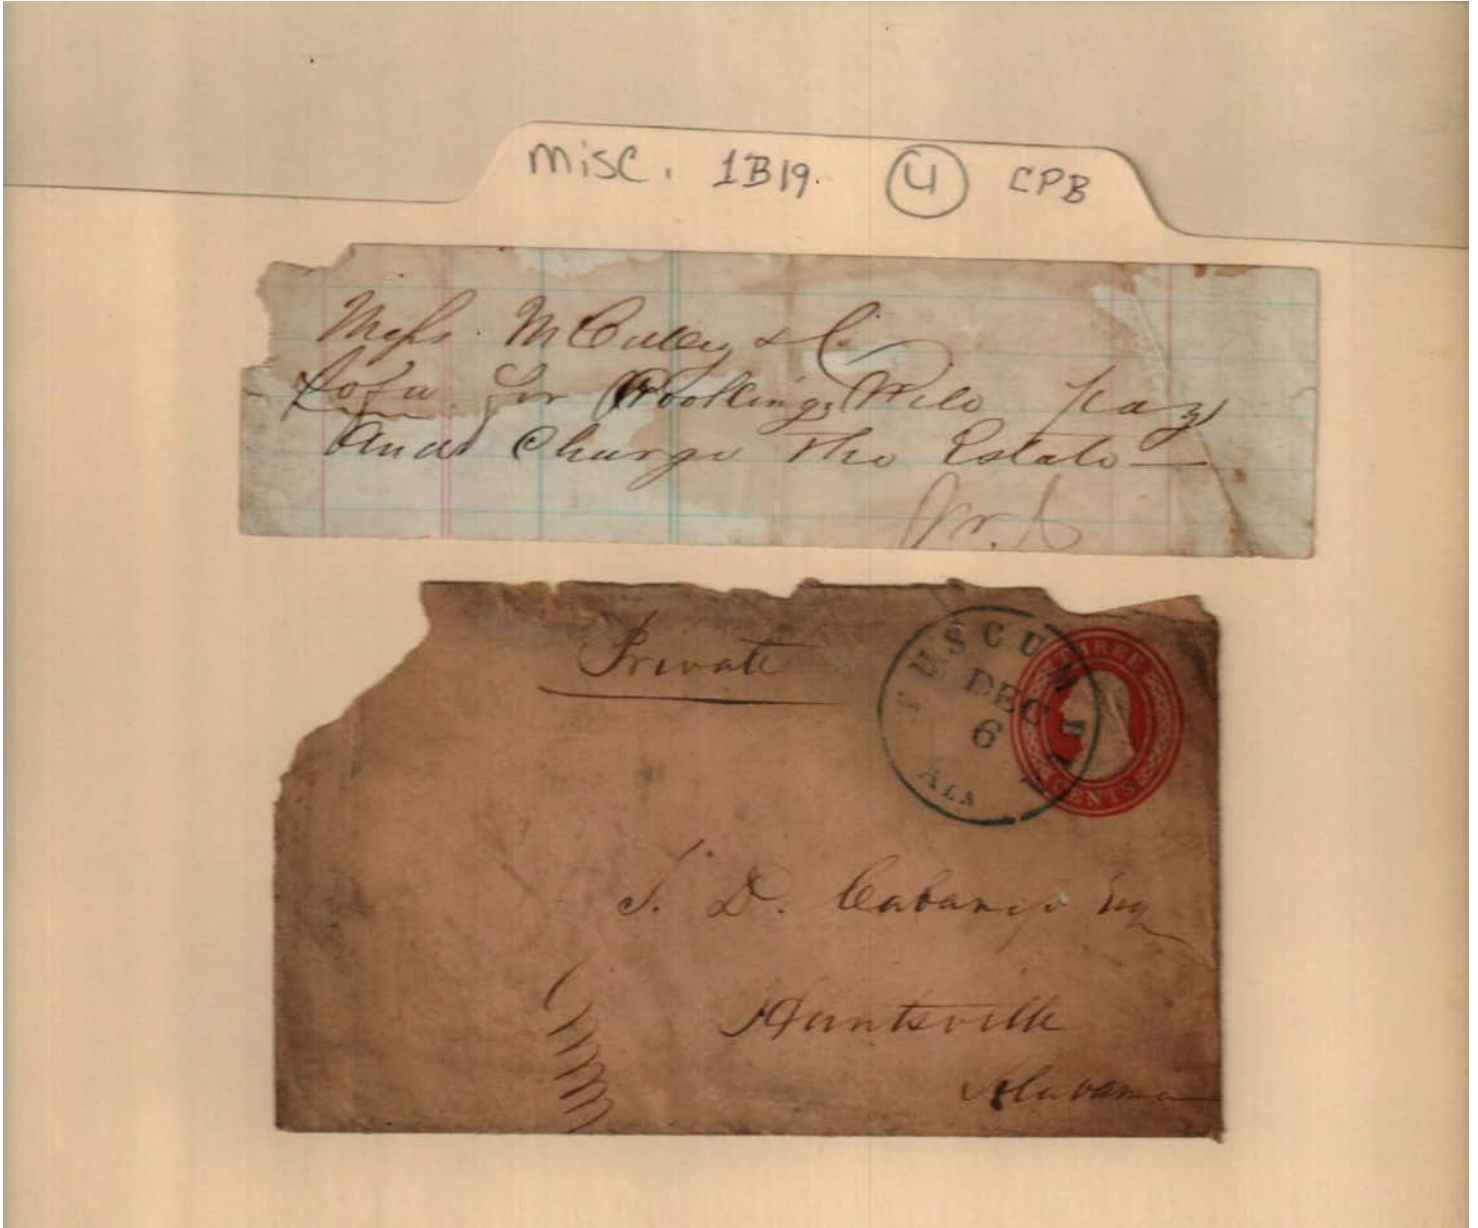 misc. 1B19. 4 CPB
Mess. McCuley & Co.
for Mile pay
And Charge the Estate —
Private
TUSCUMBIA
DEC
6
ALA
THREE
CENTS
S. D. Cabaniss Esq
Huntsville
Alabama